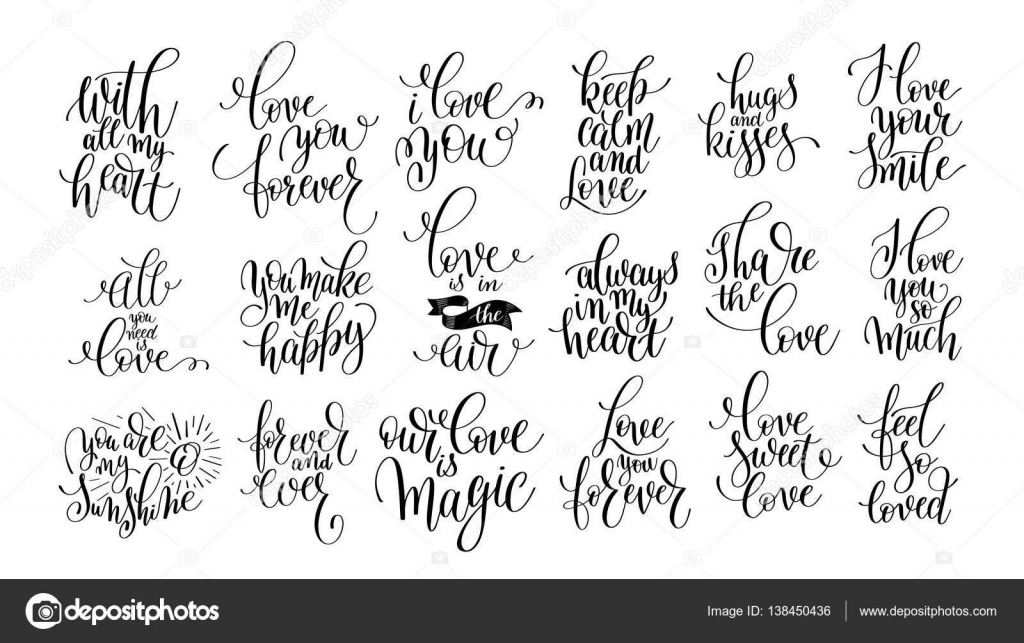 with
all my
heart
love
you
forever
i love
you
keep
calm
and
love
hugs
and
kisses
I love
your
smile
all
you
need is
love
you make
me
happy
love
is in
the
air
always
in my
heart
Share
the
love
I love
you
so
much
you are
my
sunshine
forever
and
ever
our love
is
magic
Love
you
forever
love
sweet
love
feel
so
loved
depositphotos
Image ID: 138450436
www.depositphotos.com